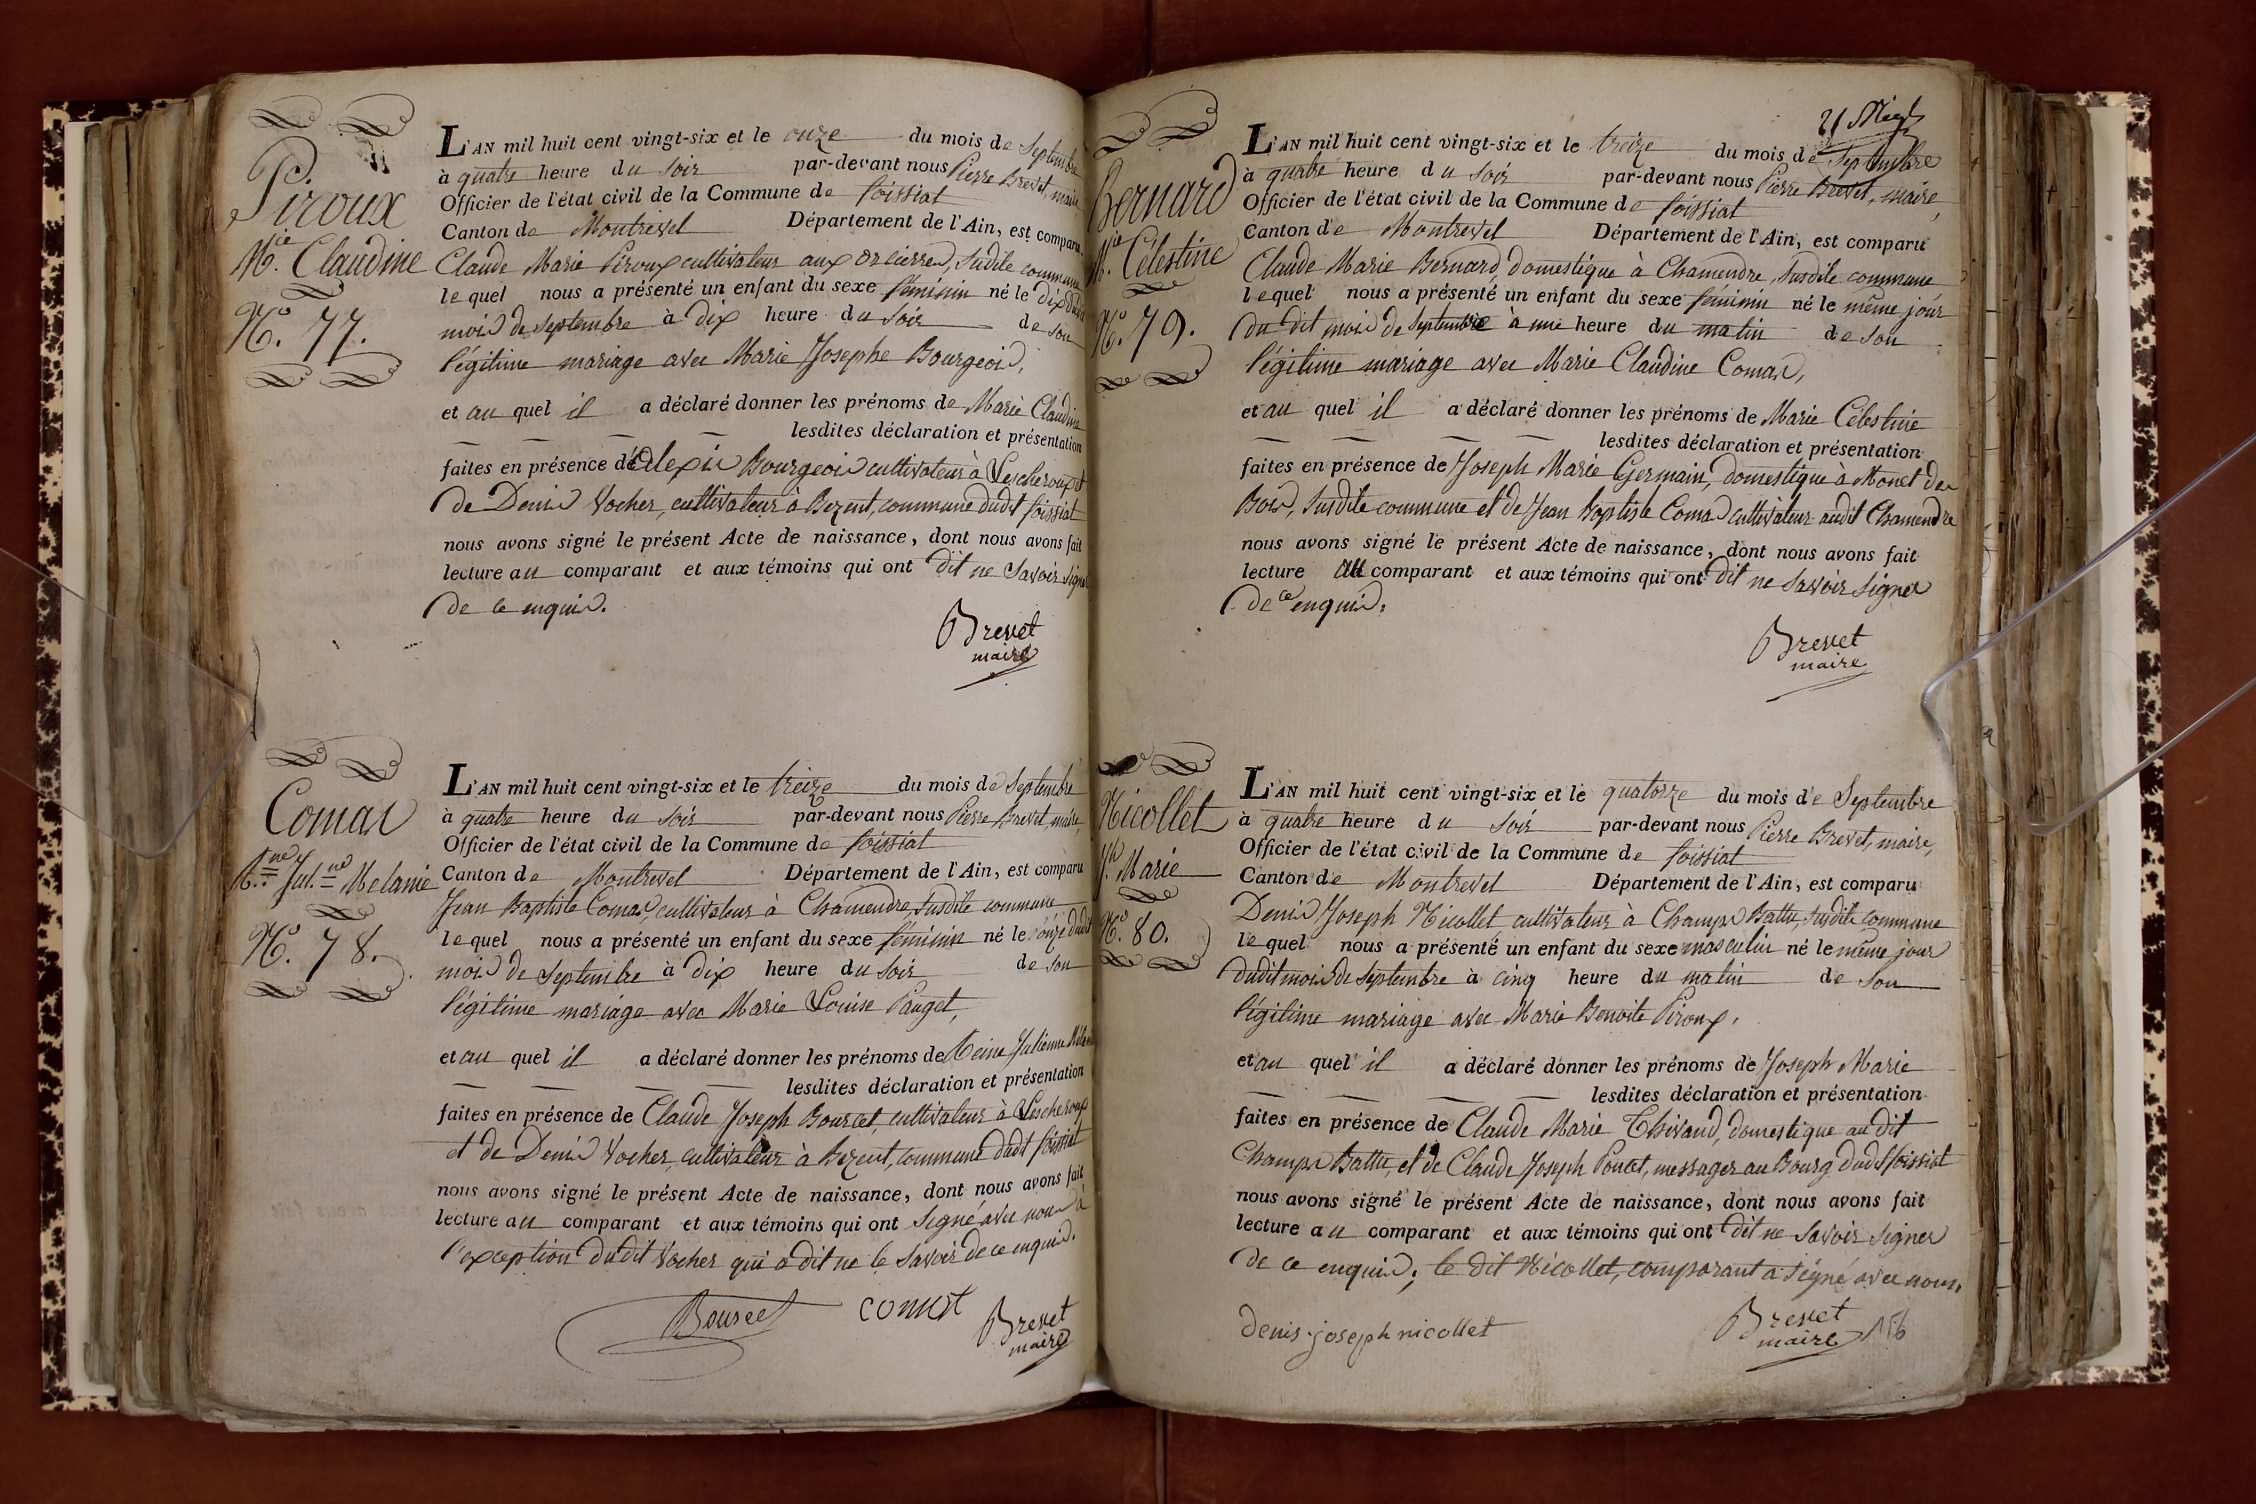 Piroux
M.ie Claudine
N.o 77.
L'AN mil huit cent vingt-six et le onze du mois de Septembre
à quatre heure du soir par-devant nous Pierre Brevet, maire
Officier de l'état civil de la Commune de foissiat
Canton de Montrevel Département de l'Ain, est comparu
Claude Marie Piroux cultivateur aux susdite commune
lequel nous a présenté un enfant du sexe féminin né le dix dudit
mois de Septembre à dix heure du soir de son
légitime mariage avec Marie Josephe Bourgeois,
et au quel il a déclaré donner les prénoms de Marie Claudine
lesdites déclaration et présentation
faites en présence de Alexis Bourgeois cultivateur à Lescheroux et
de Denis Vocher, cultivateur à Bezent, commune dudit foissiat
nous avons signé le présent Acte de naissance, dont nous avons fait
lecture au comparant et aux témoins qui ont dit ne savoir signer
de ce enquis.
Brevet
maire
Comas
R.ne Jul.ne Melanie
N.o 78.
L'AN mil huit cent vingt-six et le treize du mois de Septembre
à quatre heure du soir par-devant nous Pierre Brevet, maire,
Officier de l'état civil de la Commune de foissiat
Canton de Montrevel Département de l'Ain, est comparu
Jean Baptiste Comas, cultivateur à Chamendre, susdite commune
lequel nous a présenté un enfant du sexe féminin né le dudit
mois de Septembre à dix heure du soir de son
légitime mariage avec Marie Louise Pauget,
et au quel il a déclaré donner les prénoms de Reine Julienne Mélanie
lesdites déclaration et présentation
faites en présence de Claude Joseph Bourcet, cultivateur à Lescheroux
et de Denis Vocher, cultivateur à Bezent, commune dudit foissiat
nous avons signé le présent Acte de naissance, dont nous avons fait
lecture au comparant et aux témoins qui ont signé avec nous à
l'exception dudit Vocher qui a dit ne le savoir de ce enquis.
Bourcet
Brevet
maire
Bernard
M.ie Célestine
N.o 79.
L'AN mil huit cent vingt-six et le treize du mois de Septembre
à quatre heure du soir par-devant nous Pierre Brevet, maire,
Officier de l'état civil de la Commune de foissiat
Canton de Montrevel Département de l'Ain, est comparu
Claude Marie Bernard, domestique à Chamendre, susdite commune
lequel nous a présenté un enfant du sexe féminin né le même jour
du dit mois de Septembre à une heure du matin de son
légitime mariage avec Marie Claudine Comas,
et au quel il a déclaré donner les prénoms de Marie Célestine
lesdites déclaration et présentation
faites en présence de Joseph Marie Germain, domestique à Monet des
Bois, susdite commune et de Jean Baptiste Comas cultivateur audit Chamendre
nous avons signé le présent Acte de naissance, dont nous avons fait
lecture au comparant et aux témoins qui ont dit ne savoir signer
de ce enquis.
Brevet
maire
Nicollet
J.h Marie
N.o 80.
L'AN mil huit cent vingt-six et le quatorze du mois de Septembre
à quatre heure du soir par-devant nous Pierre Brevet, maire,
Officier de l'état civil de la Commune de foissiat
Canton de Montrevel Département de l'Ain, est comparu
Denis Joseph Nicollet, cultivateur à Champs Battu, susdite commune
lequel nous a présenté un enfant du sexe masculin né le même jour
dudit mois de Septembre à cinq heure du matin de son
légitime mariage avec Marie Benoite Piroux,
et au quel il a déclaré donner les prénoms de Joseph Marie
lesdites déclaration et présentation
faites en présence de Claude Marie Thivaud, domestique au dit
Champs Battu, et de Claude Joseph Poncet, messager au Bourg dudit foissiat
nous avons signé le présent Acte de naissance, dont nous avons fait
lecture au comparant et aux témoins qui ont dit ne savoir signer
de ce enquis; le dit Nicollet, comparant a signé avec nous.
denis joseph nicollet
Brevet
maire